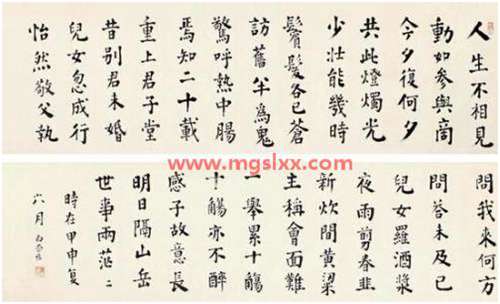 人生不相見
動如參與商
今夕復何夕
共此燈燭光
少壯能幾時
鬢髮各已蒼
訪舊半爲鬼
驚呼熱中腸
焉知二十載
重上君子堂
昔別君未婚
兒女忽成行
怡然敬父執
www.mgslxx.com
問我來何方
問答未及已
兒女羅酒漿
夜雨剪春韭
新炊間黃粱
主稱會面難
一舉累十觴
十觴亦不醉
感子故意長
明日隔山岳
世事兩茫〻
時在甲申夏
六月